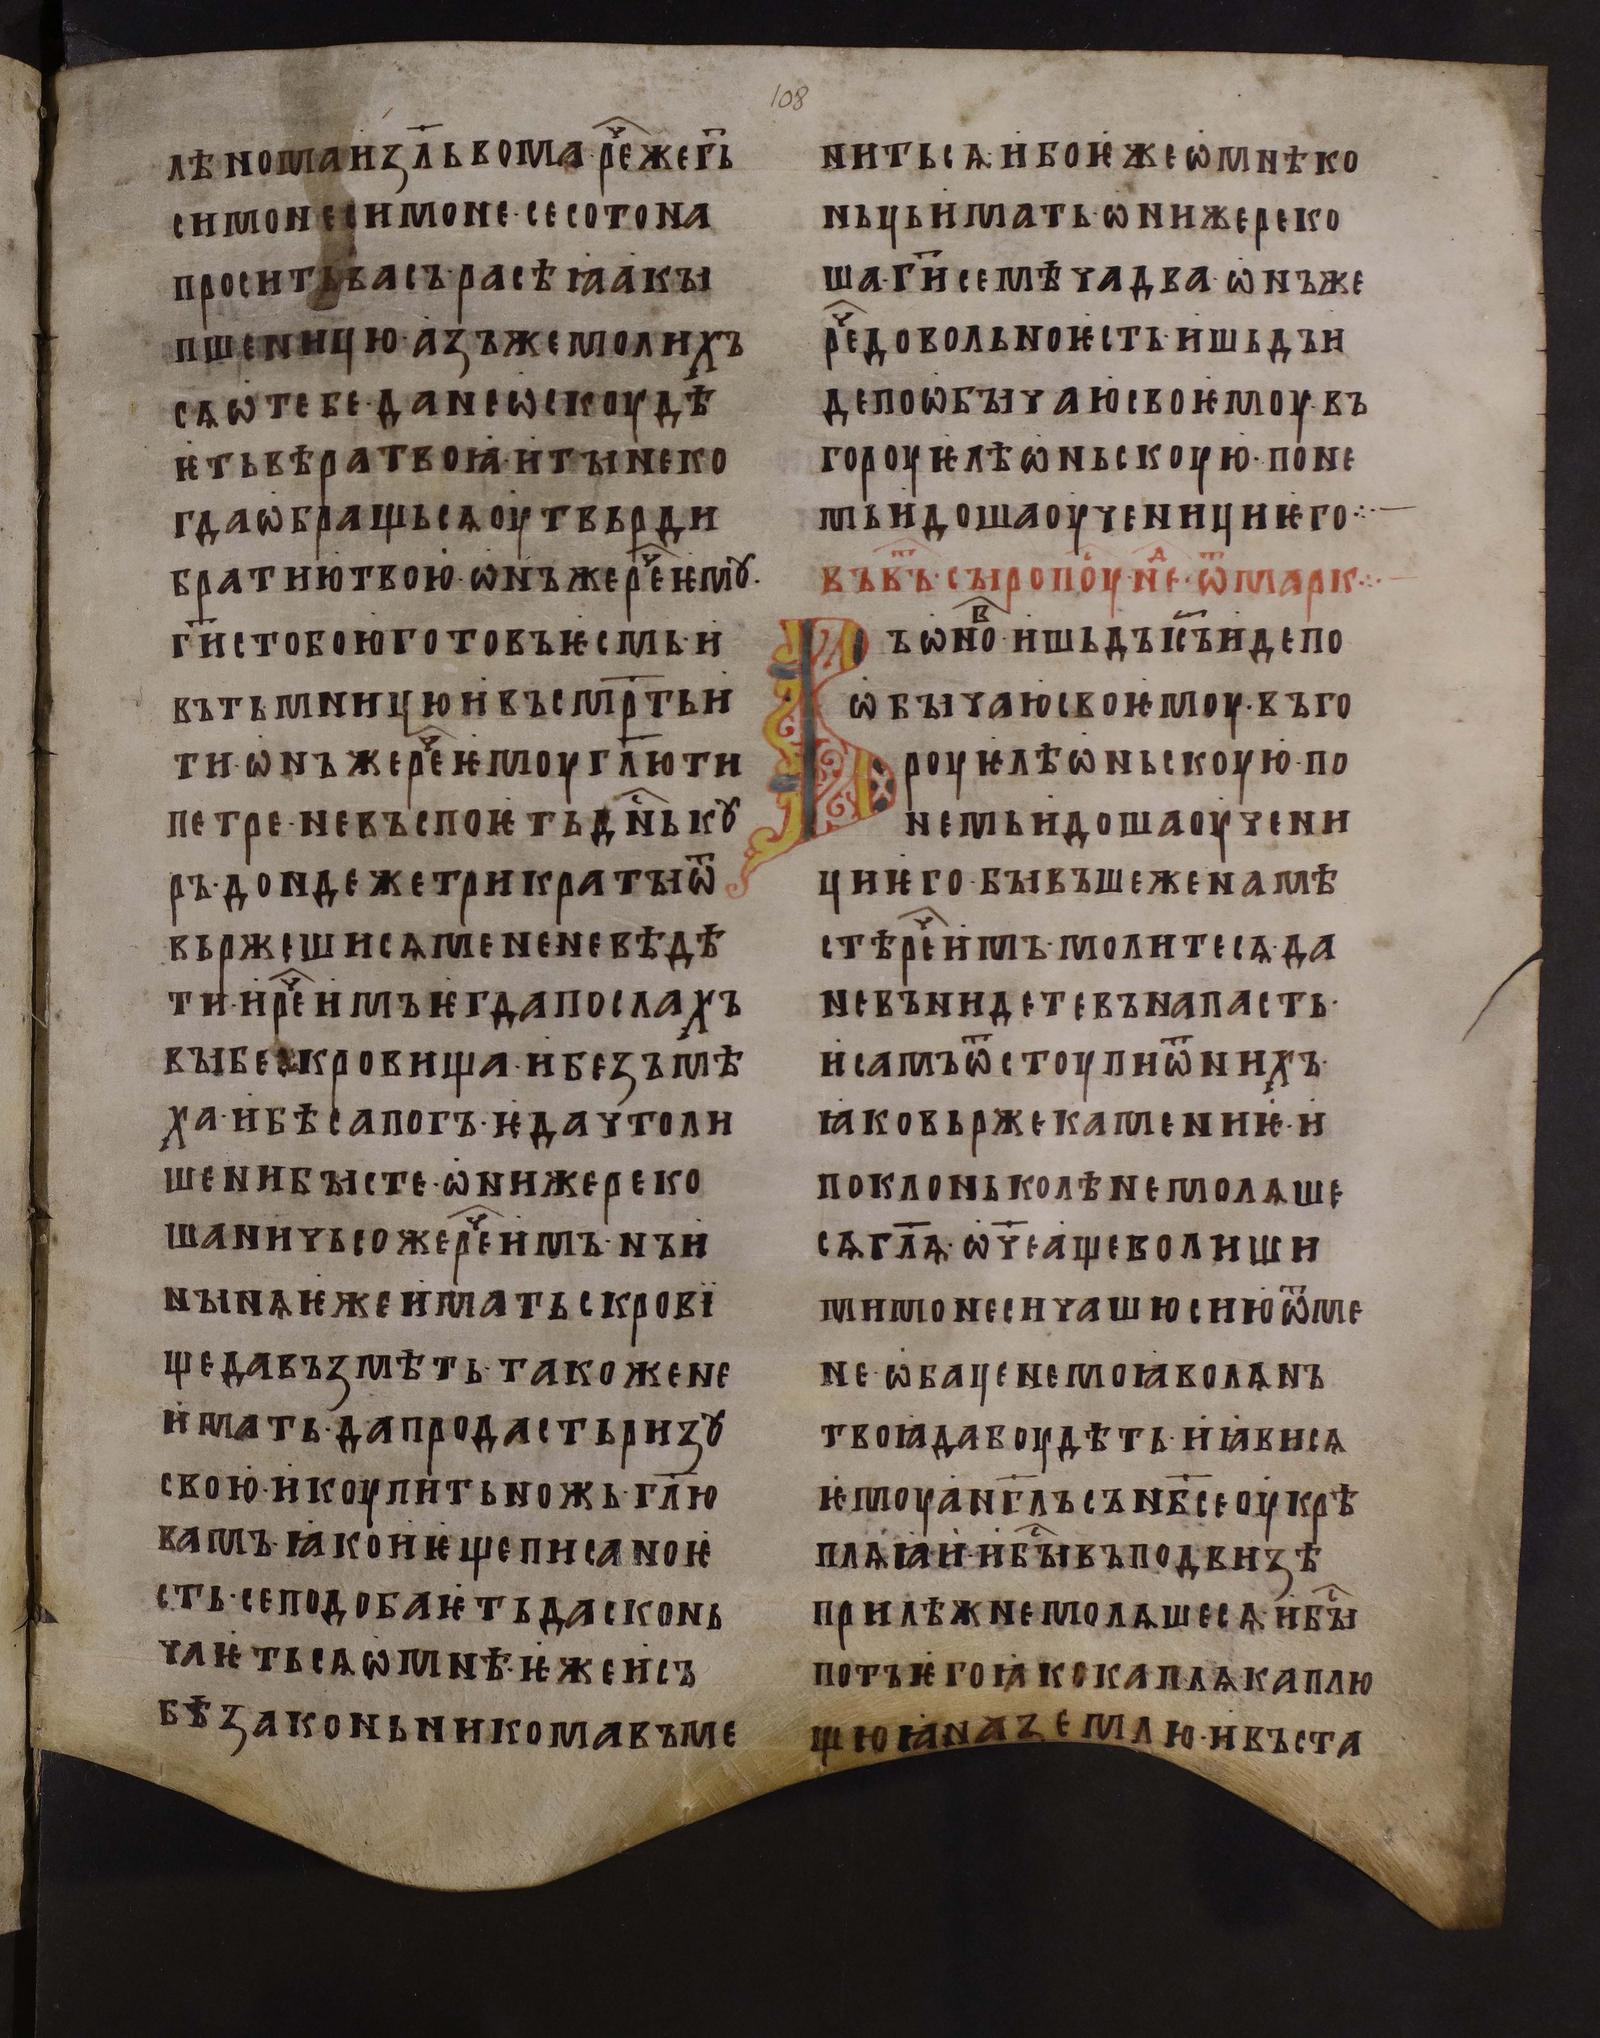 108
лѣномаизл҃ьвома·реⷱ҇жег҃ь
симонесимоне·сесотона
проситьвасъ·расѣꙗакꙑ
пшеницю·азъжемолихъ
сѧѡтебе·данеѡскоудѣ
ѥтьвѣратвоꙗ·итꙑнеко
гдаѡбращьсѧоутвьрди
братиютвою·ѡнъжереⷱ҇ѥмꙋ·
г҃истобоюготовъѥсмь·и
вътьмницюивъсмр҃тьи
ти·ѡнъжереⷱ҇ѥмоугл҃юти
петре·невъспоѥтьднⷭ҇ькꙋ
ръ·дондежетрикратꙑѿ
вьржешисѧмененевѣдѣ
ти·иреⷱ҇имъѥгдапослахъ
вꙑбескровища·ибезъмѣ
ха·ибѣсапогъ·ѥдачтоли
шенибꙑсте·ѡнижереко
шаничьсожереⷱ҇имъ·нъи
нꙑнѧѥжеиматьскровї
щедавъзмѣть·такожене
имать·дапродастьризꙋ
свою·икоупитьножь·гл҃ю
вамъ·ꙗкоиѥщеписаноѥ
сть·сеподобаѥтьдасконь
чаѥтьсѧѡмнѣ·ѥжеисъ
бѣзаконьникомавъме
нитьсѧ·ибоѥжеѡмнѣко
ньцьимать·ѡнижереко
ша·г҃исемѣчадва·ѡнъже
реⷱ҇довольноѥсть·ишьдъи
депоѡбꙑчаюсвоѥмоу·въ
гороуѥлѣѡньскоую·поне
мьидошаоученициѥго·:·—
въвⷮъ·сꙑропоⷭ҇у·нⷣе·ѿмарк·:·—
Въѡноⷡ·ишьдъі҃съидепо
ѡбꙑчаюсвоѥмоу·въго
роуѥлѣѡньскоую·по
немьидошаоучени
циѥго·бꙑвъшеженамѣ
стѣреⷱ҇имъ·молитесѧ·да
невънидетевънапасть·
исамъѿстоупиѿнихъ·
ꙗковьржекамениѥ·и
поклонькодѣнемолѧше
сѧгл҃ѧ·ѡч҃еащеволиши
мимонесичашюсиюѿме
не·ѡбаценемоꙗволѧнъ
твоꙗдабоудѣть·иꙗвисѧ
ѥмоуанг҃лъсънб҃сеоукрѣ
плѧꙗи·ибꙑⷭ҇въподвизѣ
прилѣжнемолѧшесѧ·ибꙑⷭ҇
потъѥгоꙗкокаплѧкаплю
щюꙗназемлю·ивъста